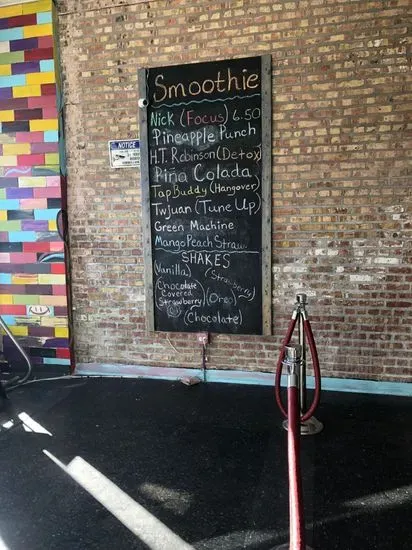 Smoothie
Nick (Focus) 6.50
Pineapple Punch
H.T. Robinson (Detox)
Piña Colada
Tap Buddy (Hangover)
TwJuan (Tune Up)
Green Machine
Mango Peach Straw
SHAKES
(Vanilla)
(Strawberry)
(Chocolate
Covered
Strawberry)
(Oreo)
(Chocolate)
NOTICE